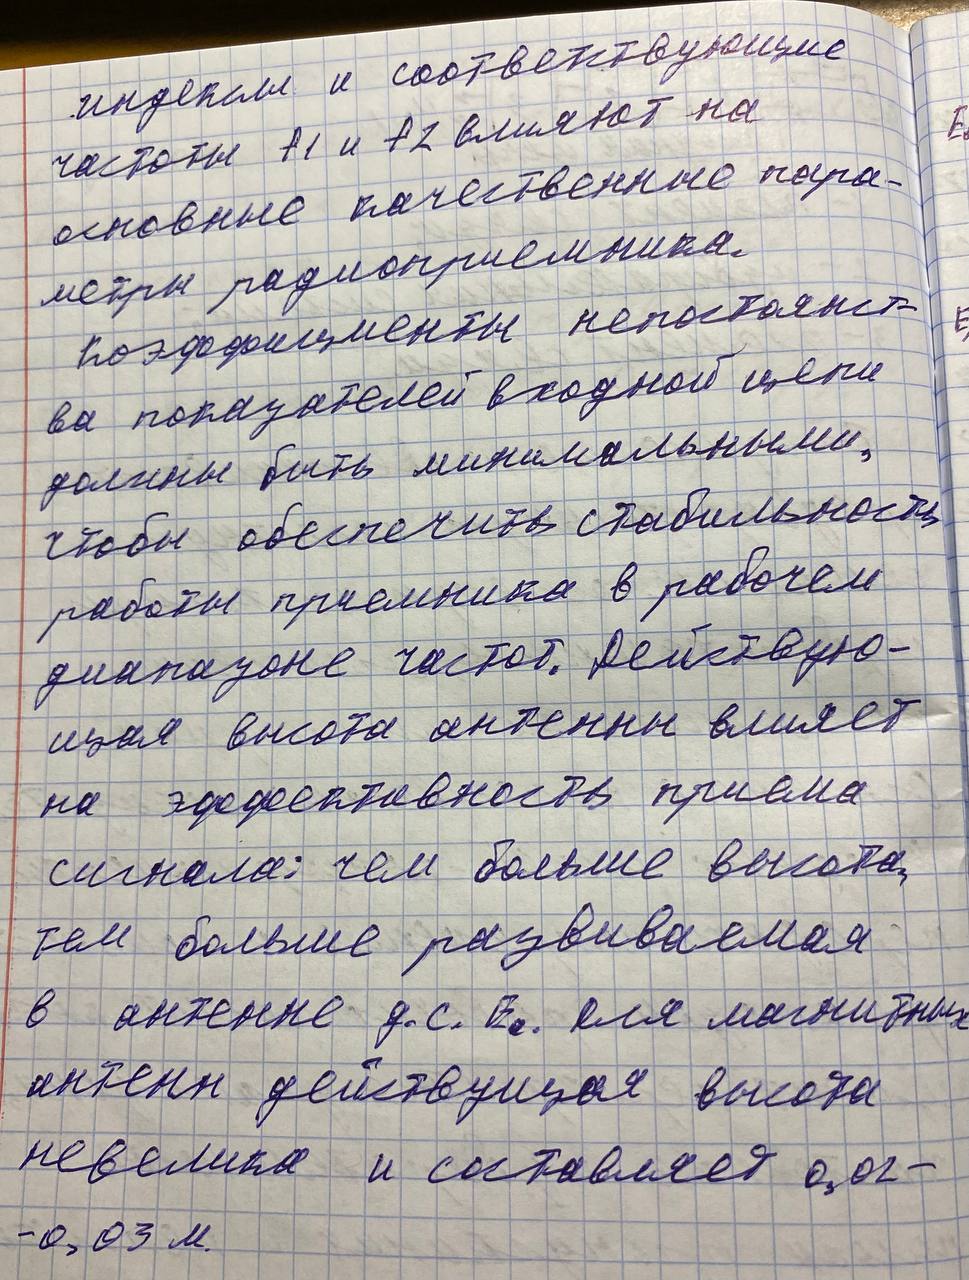 индексы и соответствующие
частоты f1 и f2 влияют на
основные качественные пара-
метры радиоприемника.
Коэффициенты непостоянст-
ва показателей входной цепи
должны быть минимальными,
чтобы обеспечить стабильность
работы приемника в рабочем
диапазоне частот. Действую-
щая высота антенны влияет
на эффективность приема
сигнала: чем больше высота,
тем больше развиваемая
в антенне д.с. Е. Для магнитных
антенн действующая высота
невелика и составляет 0,02-
-0,03 м.